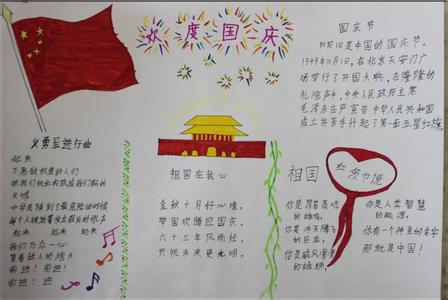 欢度国庆
国庆节
10月1日是中国的国庆节。
1949年10月1日,在北京天安门广
场举行了开国大典,在隆隆的
礼炮声中,中央人民政府主席
毛泽东庄严宣告中华人民共和国
成立并亲手升起了第一面五星红旗
义勇军进行曲
起来
不愿做奴隶的人们
把我们的血肉筑成我们新的
长城
中华民族到了最危险的时候
每个人被迫着发出最后的吼声
起来 起来 起来
我们万众一心
冒着敌人的炮火
前进!前进!
前进!进
祖国在我心
金秋十月好心境,
举国欢腾迎国庆。
六十三年风雨程,
共祝未来更光明。
祖国
红领巾说
你是昂首高吭
的雄鸡,
你是冲天腾飞
的巨龙,
你是威风凛凛
的雄狮,
你是人类智慧
的起源,
你有一个神圣的名字
那就是中国!